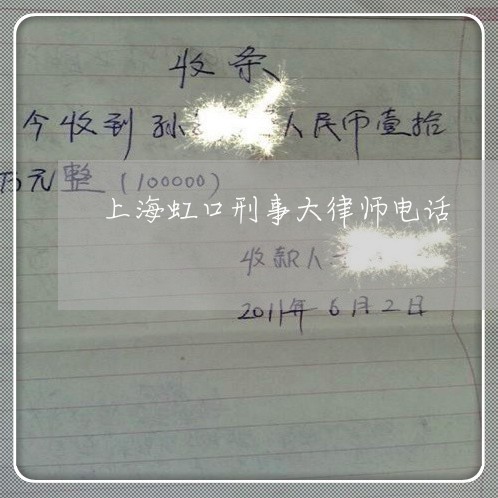 收条
今收到 孙 人民币壹拾
万元整（100000）
上海虹口刑事大律师电话
收款人
2011年6月2日